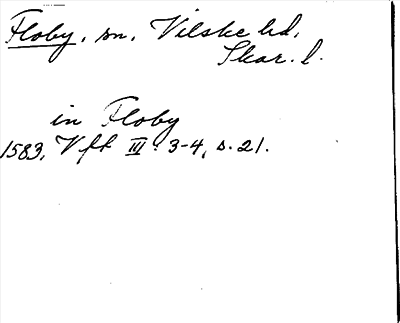 Floby, sn, Vilske hd,
Skar. l.
in Floby
1583, Vft III: 3-4, s. 21.